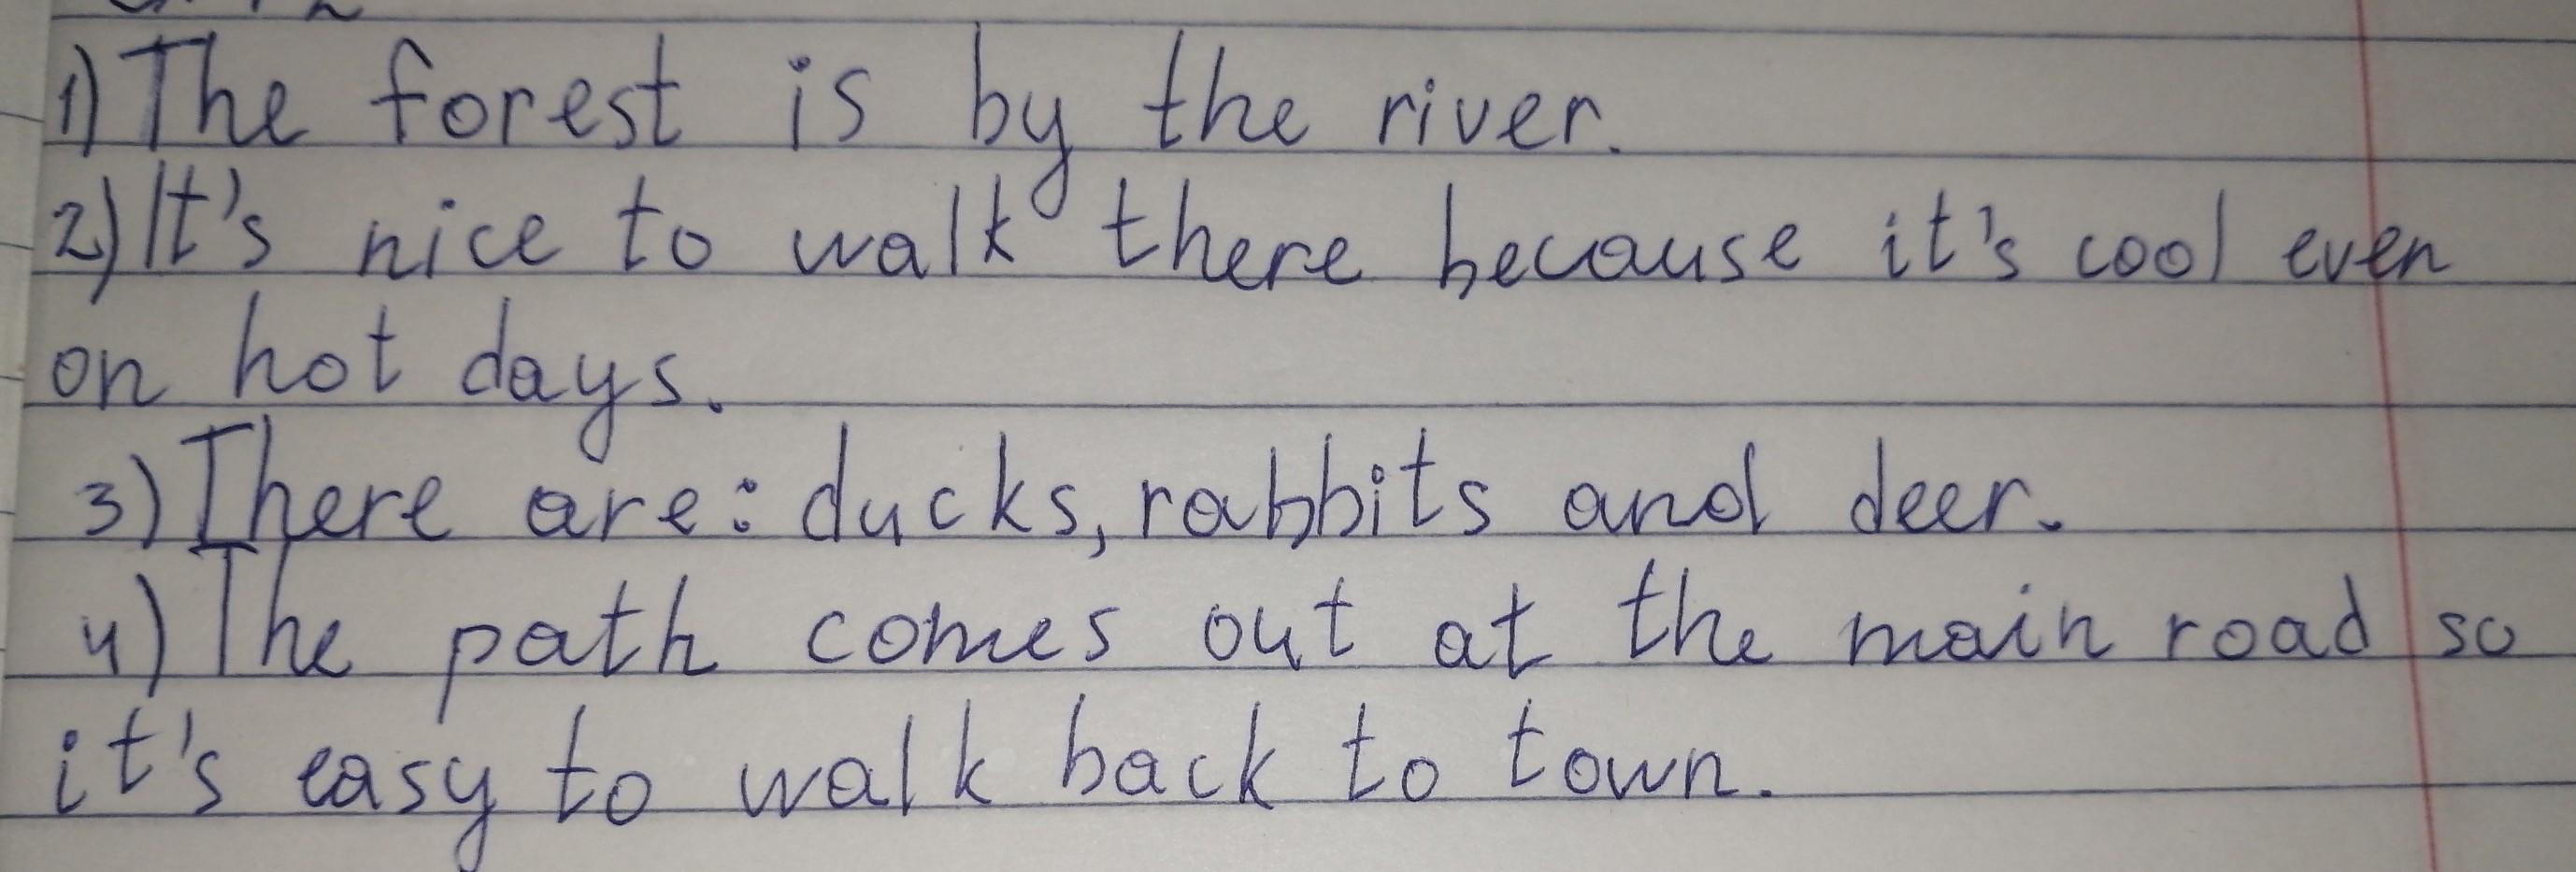 1) The forest is by the river.
2) It's nice to walk there because it's cool even
on hot days.
3) There are: ducks, rabbits and deer.
4) The path comes out at the main road so
it's easy to walk back to town.